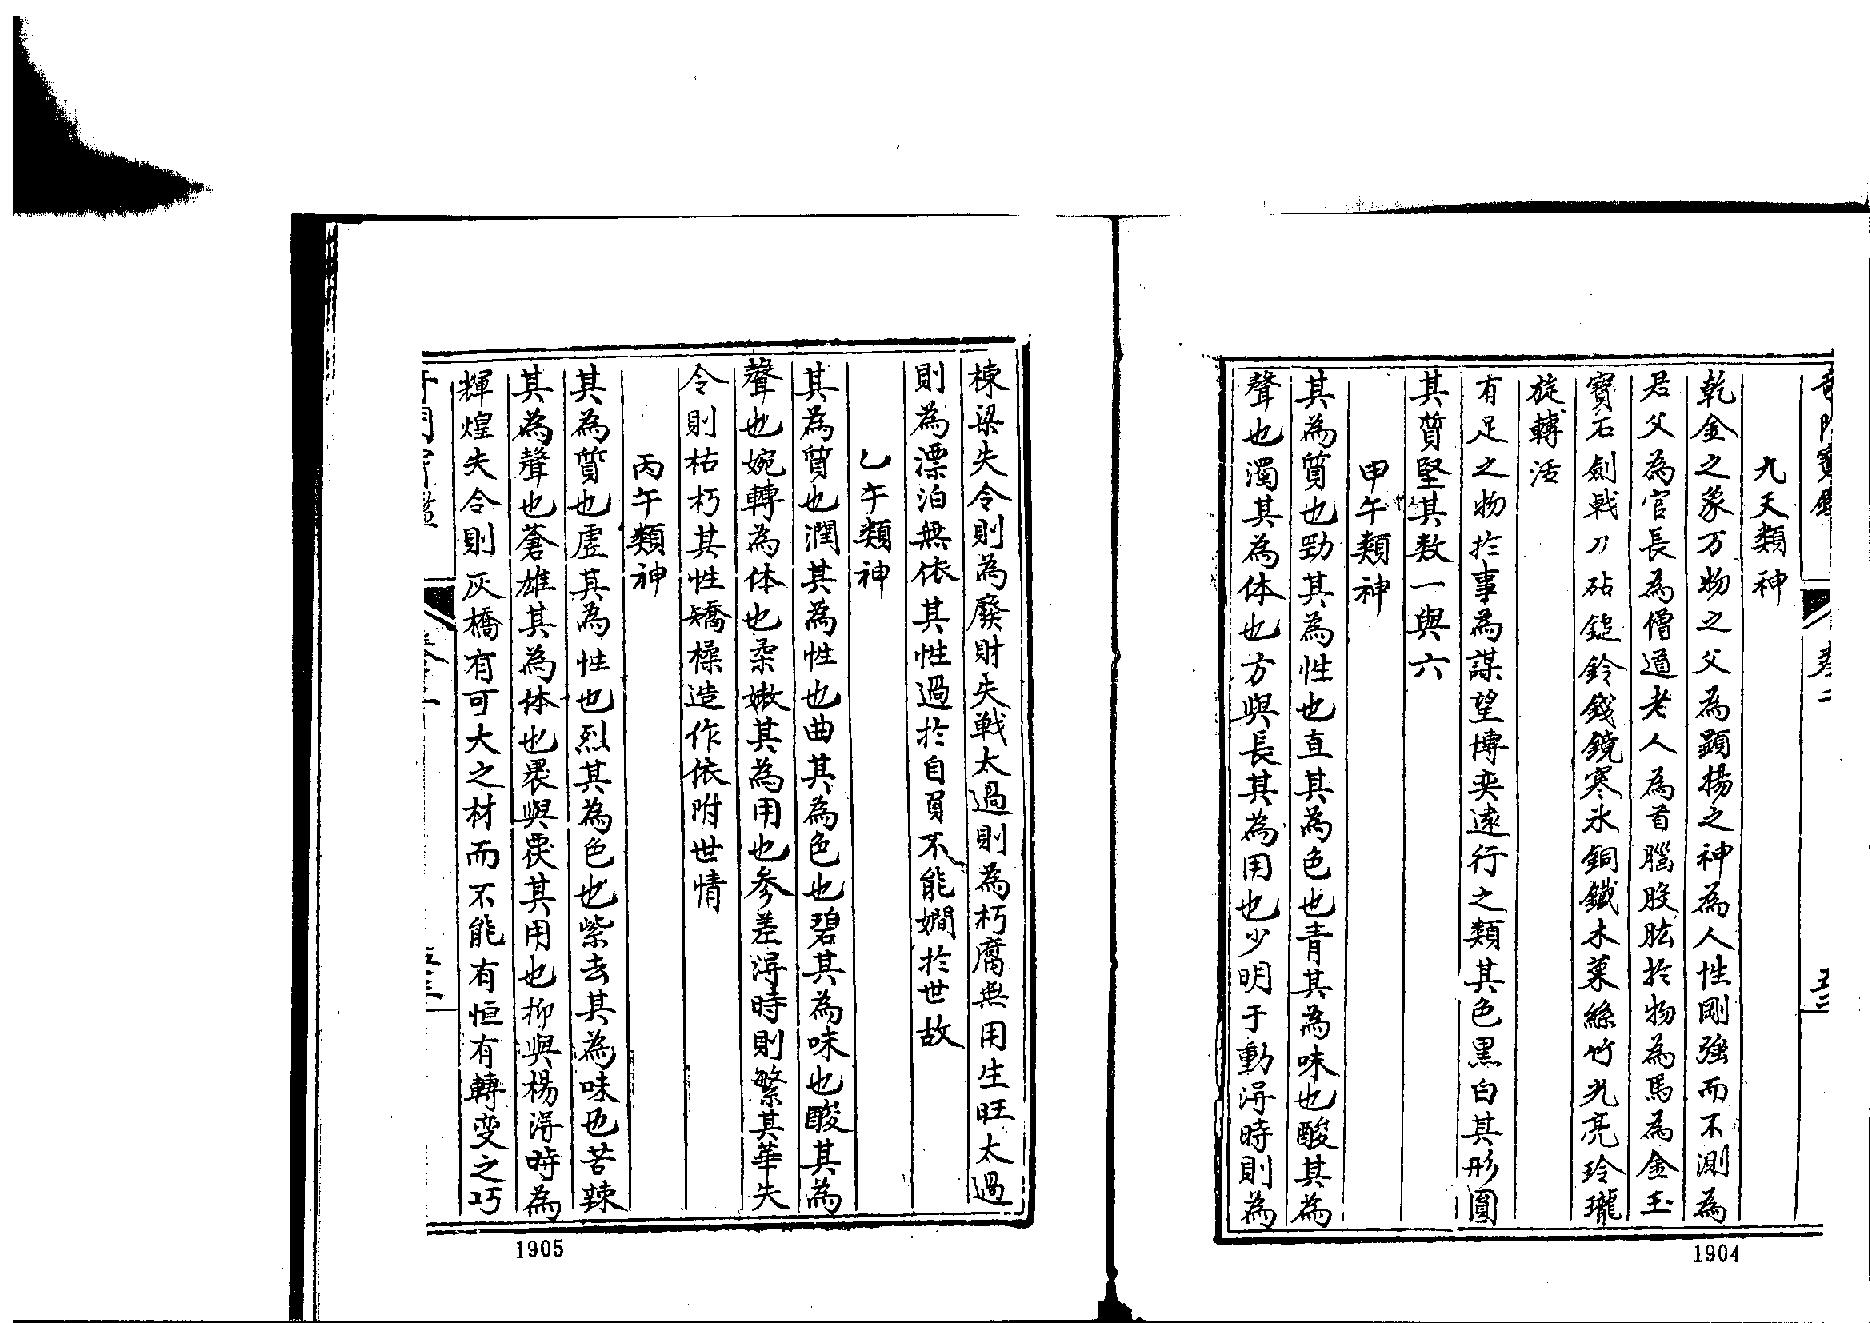 九天類神
乾金之象万物之父為顯揚之神為人性剛強而不測為
君父為官長為僧道老人為首腦肢肱於物為馬為金玉
寶石劍戟刀砧錠鈴錢鏡寒氷銅鐵木菓絲竹光亮玲瓏
旋轉活
有足之物於事為謀望博奕遠行之類其色黑白其形圓
其質堅其数一與六
甲午類神
其為質也勁其為性也直其為色也青其為味也酸其為
聲也濁其為体也方與長其為用也少明于動淂時則為
1904
棟梁失令則為廢財失戰太過則為朽腐無用生旺太過
則為漂泊無依其性過於自負不能嫺於世故
乙午類神
其為質也潤其為性也曲其為色也碧其為味也酸其為
聲也婉轉為体也柔嫩其為用也参差淂時則繁其華失
令則枯朽其性矯橾造作依附世情
丙午類神
其為質也虛其為性也烈其為色也紫去其為味也苦辣
其為聲也蒼雄其為体也褁與其用也抑與楊淂時為
輝煌失令則灰橋有可大之材而不能有恒有轉变之巧
1905